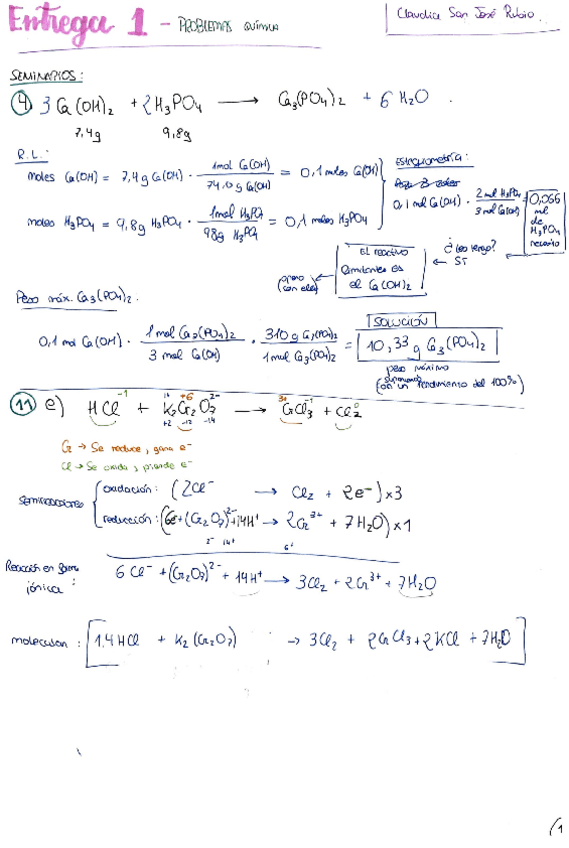 Entrega 1 - PROBLEMAS QUÍMICA
Claudia San José Rubio.
SEMINARIOS:
④ 3 Ca(OH)₂ + 2H₃PO₄ → Ca₃(PO₄)₂ + 6 H₂O.
7,4g 9,8g
R.L.:
moles Ca(OH) = 7,4 g Ca(OH) · 1mol Ca(OH) / 74,0 g Ca(OH) = 0,1 moles Ca(OH)
moles H₃PO₄ = 9,8g H₃PO₄ · 1mol H₃PO₄ / 98g H₃PO₄ = 0,1 moles H₃PO₄
Estequiometría:
0,1 mol Ca(OH) · 2 mol H₃PO₄ / 3 mol Ca(OH) = 0,066 mol de H₃PO₄ necesito
¿los tengo? SÍ
El reactivo limitante es el Ca(OH)₂
(opero con ella)
Peso máx. Ca₃(PO₄)₂.
0,1 mol Ca(OH) · 1 mol Ca₃(PO₄)₂ / 3 mol Ca(OH) · 310 g Ca₃(PO₄)₂ / 1 mol Ca₃(PO₄)₂ = 10,33 g Ca₃(PO₄)₂
SOLUCIÓN
peso máximo
(suponiendo un rendimiento del 100%)
⑪ e) HCl⁻¹ + K₂Cr₂O₇ → CrCl₃ + Cl₂⁰
1+ +6 2- 3+ -1
+2 -12 -14
Cr → Se reduce, gana e⁻
Cl → Se oxida, pierde e⁻
semirreacciones
oxidación: (2Cl⁻ → Cl₂ + 2e⁻) x3
reducción: (6e⁻ + (Cr₂O₇)²⁻ + 14H⁺ → 2Cr³⁺ + 7H₂O) x1
2- 14+ 6+
Reacción en forma iónica: 6Cl⁻ + (Cr₂O₇)²⁻ + 14H⁺ → 3Cl₂ + 2Cr³⁺ + 7H₂O
molecular: 14 HCl + K₂(Cr₂O₇) → 3Cl₂ + 2CrCl₃ + 2KCl + 7H₂O
(1